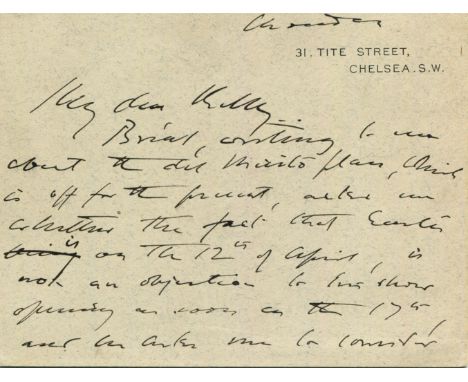 31, TITE STREET,
CHELSEA. S.W.
My dear
writing to me
about the del plan, which
is off for the present, asks me
whether the fact that Easter
is on the 12th of April, is
not an objection to his show
opening as soon as the 17th,
and he asks me to consider